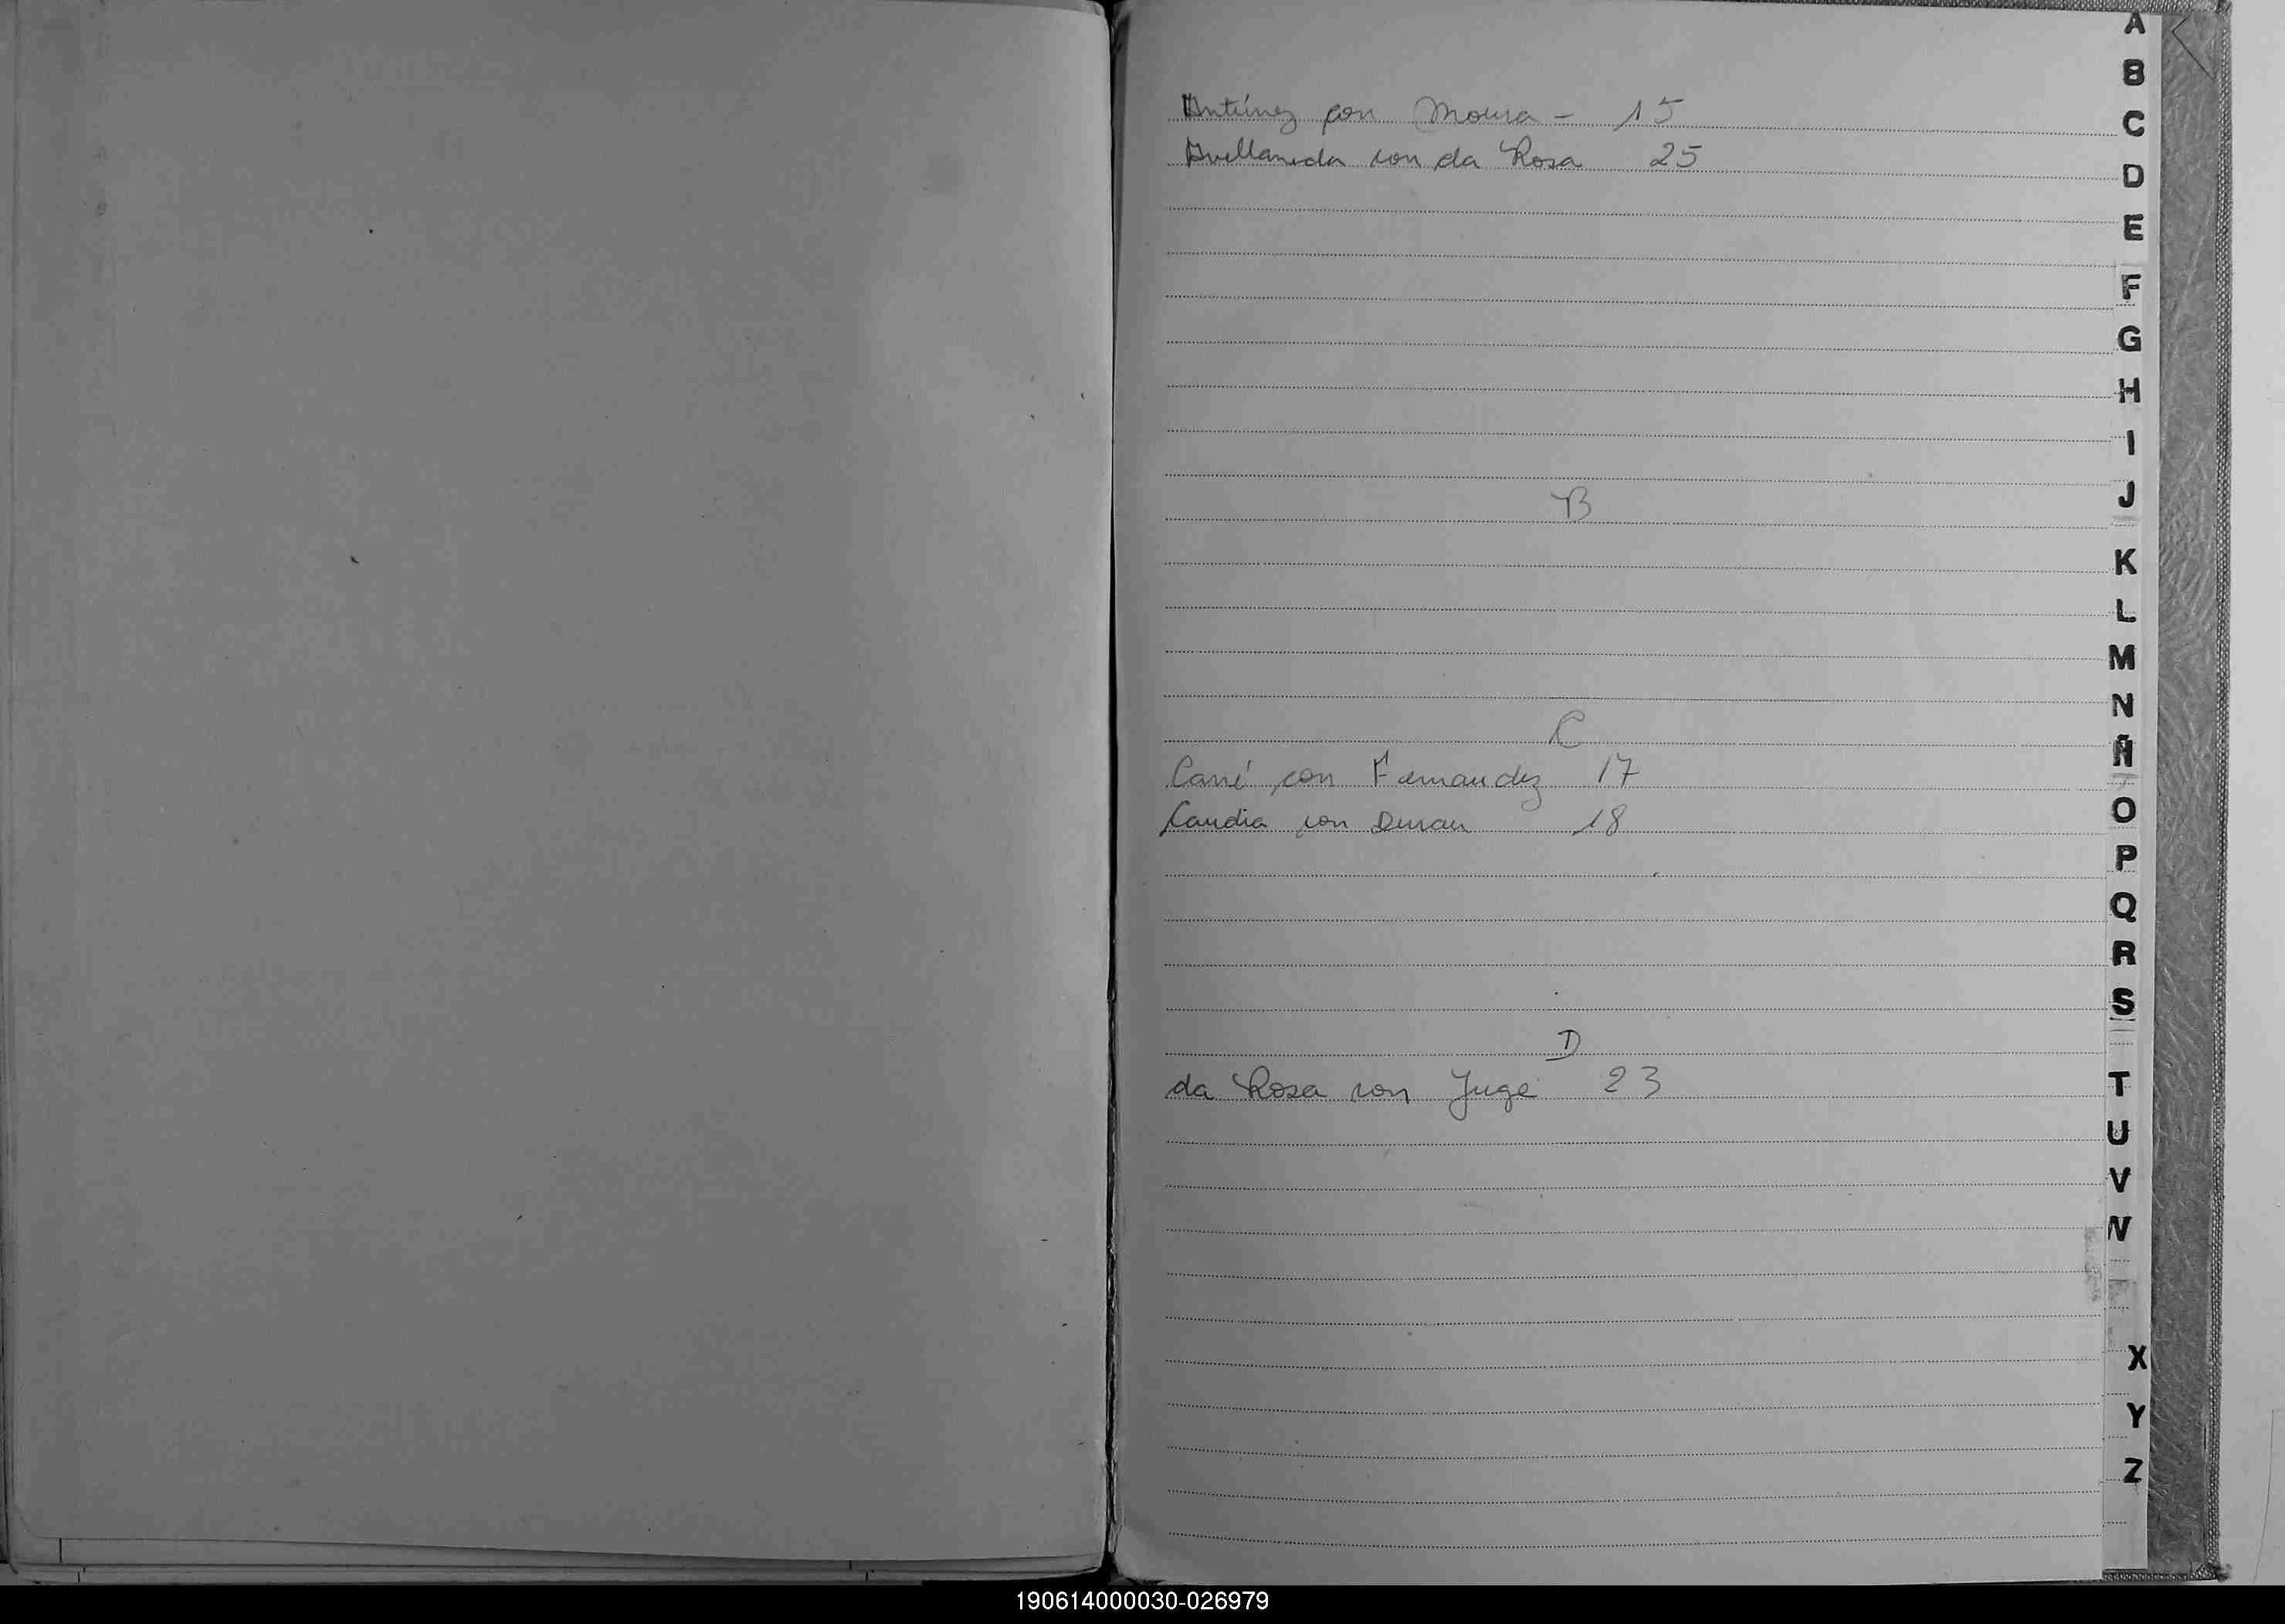 A
B
C
D
E
F
G
H
I
J
K
L
M
N
Ñ
O
P
Q
R
S
T
U
V
W
X
Y
Z
Antúnez con Moura - 15
Avellaneda con da Rosa 25
B
C
con Fernandez 17
Candia con Duran 18
D
da Rosa con Juge 23
190614000030-026979